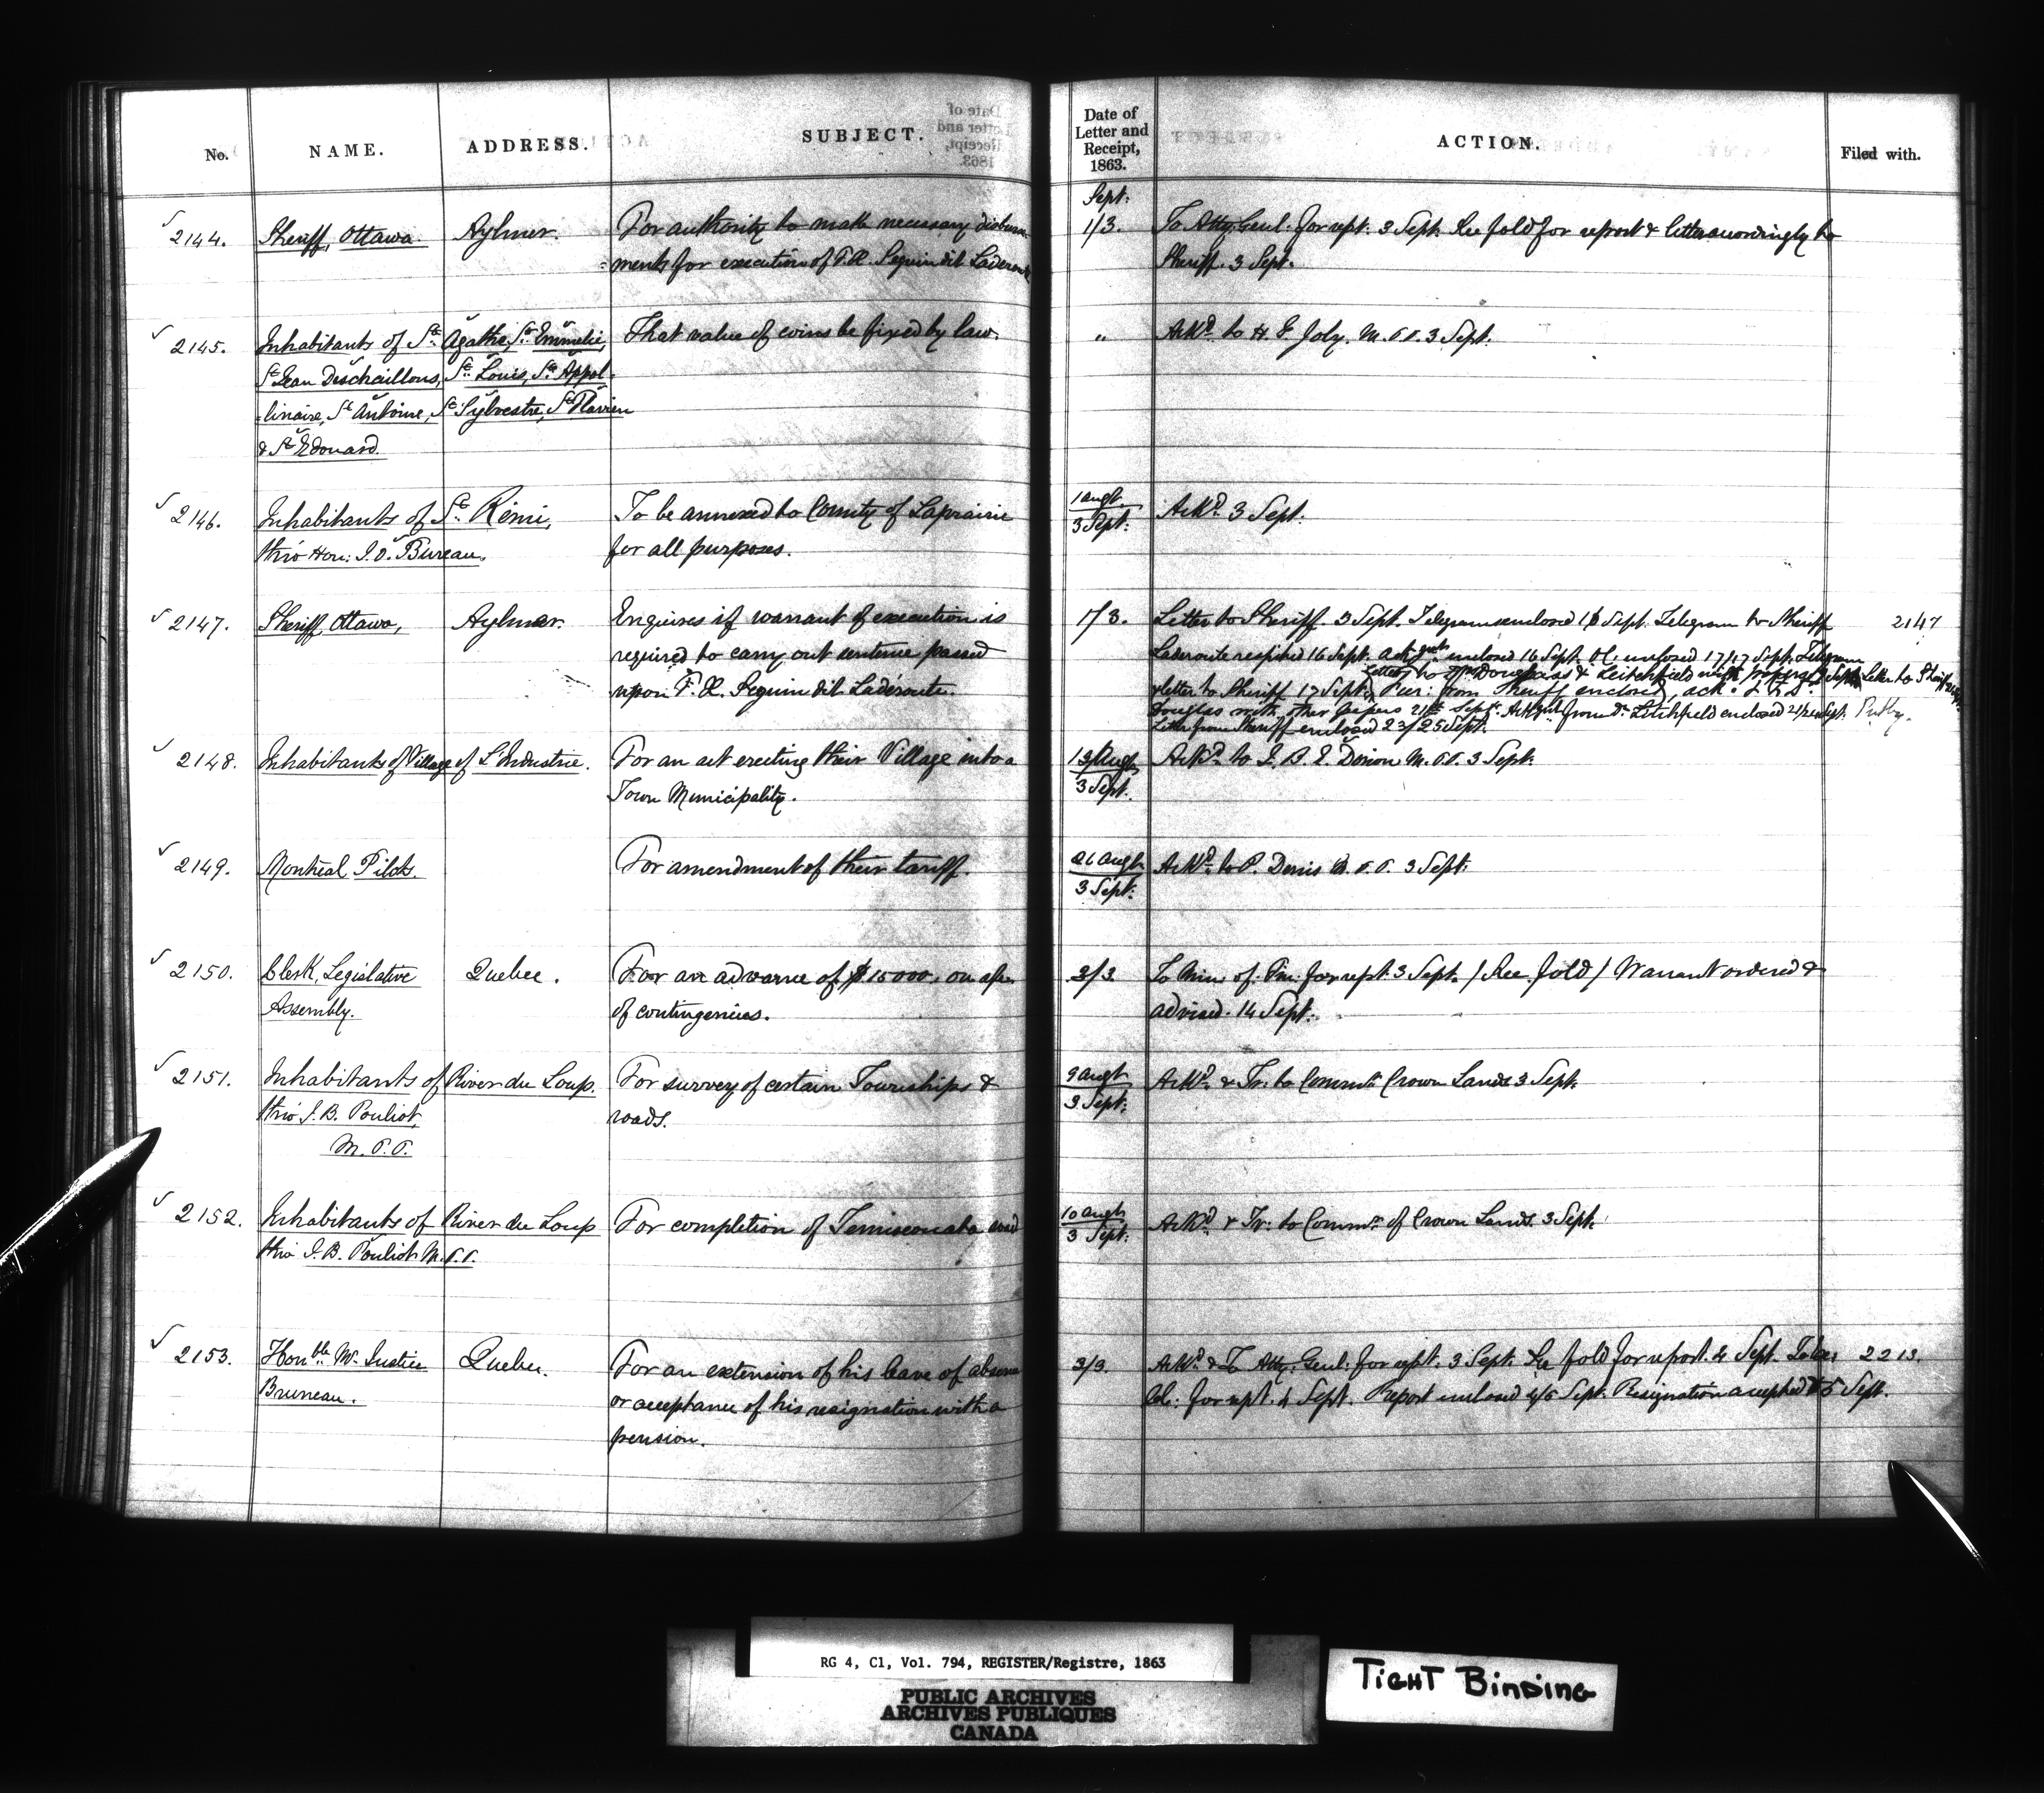 No. NAME. ADDRESS. SUBJECT. Date of Letter and Receipt, 1863. ACTION. Filed with.
Sept:
2144. Sheriff, Ottawa Aylmer. For authority to make necessary disburse- 1/3. To Atty. Genl. for rept. 3 Sept. See fold for report & letter accordingly to
=ments for execution of F. X. Seguin dit Laderoute Sheriff. 3 Sept.
2145. Inhabitants of Ste Agathe, Ste Emmelie, That value of coins be fixed by law. " Ackd. to H. G. Joly. M.P.P. 3 Sept.
St Jean Deschaillons, St. Louis, St. Appol-
-linaire, St Antoine, St Sylvestre, St Flavien
& St Edouard.
2146. Inhabitants of St. Rémi, To be annexed to County of Laprairie 1 Augt. Ackd. 3 Sept.
thro' Hon: J. O. Bureau. for all purposes. 3 Sept.
2147. Sheriff, Ottawa, Aylmer. Enquires if warrant of execution is 1/3. Letter to Sheriff. 3 Sept. Telegram enclosed Sept. Telegram to Sheriff 2147
required to carry out sentence passed Laderoute respited 16 Sept. enclosed 16 Sept. enclosed 17/17 Sept. Telegram
upon F. X. Seguin dit Ladéroute. & letter to Sheriff 17 Sept. Letter to Drs Douglass & Leitchfield with papers Sept. Letter to Sheriff
from Sheriff enclosed, ack.
Douglas with other papers 21st Sept. from Dr. Litchfield enclosed 21/21 Sept.
Letter from Sheriff enclosed 23/25 Sept.
2148. Inhabitants of Village of L'Industrie. For an act erecting their Village into a 13 Augt. Ackd. to J. B. E. Dorion M.P.P. 3 Sept.
Town Municipality. 3 Sept.
2149. Montreal Pilots. For amendment of their tariff. 26 Augt. Ackd. to P. Denis M.P.P. 3 Sept.
3 Sept.
2150. Clerk, Legislative Quebec. For an advance of $15000. on a/c. 3/3 To Min. of Fin. for rept. 3 Sept. / See fold / Warrant ordered &
Assembly. of contingencies. advised. 14 Sept.
2151. Inhabitants of River du Loup. For survey of certain Townships & 9 Augt. Ackd. & Tr. to Commr. Crown Lands 3 Sept.
thro' J. B. Pouliot, roads. 3 Sept.
M.P.P.
2152. Inhabitants of River du Loup For completion of Temiscouata road 10 Augt. Ackd. & Tr. to Commr. of Crown Lands. 3 Sept.
thro' J. B. Pouliot M.P.P. 3 Sept.
2153. Honble. Mr. Justice Quebec. For an extension of his leave of absence 3/3. Ackd. & To Atty. Genl. for rept. 3 Sept. See fold for report. 4 Sept. To Exe: 2213.
Bruneau. or acceptance of his resignation with a Cl: for rept. 4 Sept. Report enclosed 4/5 Sept. Resignation accepted 5 Sept.
pension.
RG 4, C1, Vol. 794, REGISTER/Registre, 1863
PUBLIC ARCHIVES
ARCHIVES PUBLIQUES
CANADA
TIGHT BINDING